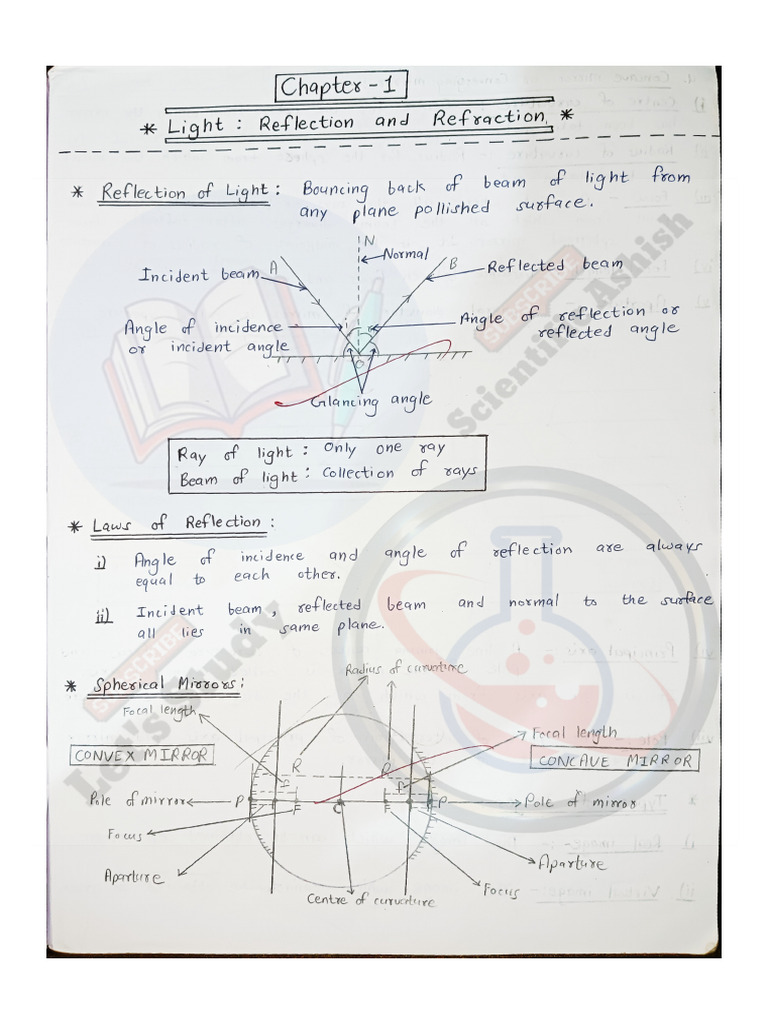 Chapter - 1
* Light : Reflection and Refraction. *
* Reflection of Light : Bouncing back of beam of light from
any plane pollished surface.
N
Normal
A
B
Incident beam
Reflected beam
Angle of incidence
or incident angle
i
r
Angle of reflection or
reflected angle
O
Glancing angle
Ray of light : Only one ray
Beam of light : Collection of rays
* Laws of Reflection :
i) Angle of incidence and angle of reflection are always
equal to each other.
ii) Incident beam, reflected beam and normal to the surface
all lies in same plane.
* Spherical Mirrors :
Radius of curvature
Focal length
Focal length
CONVEX MIRROR
CONCAVE MIRROR
R
R
f
f
Pole of mirror
P
F
C
F
P
Pole of mirror
Focus
Aparture
Aparture
Focus
Centre of curvature
SUBSCRIBE
Scientific Ashish
SUBSCRIBE
Let's Study